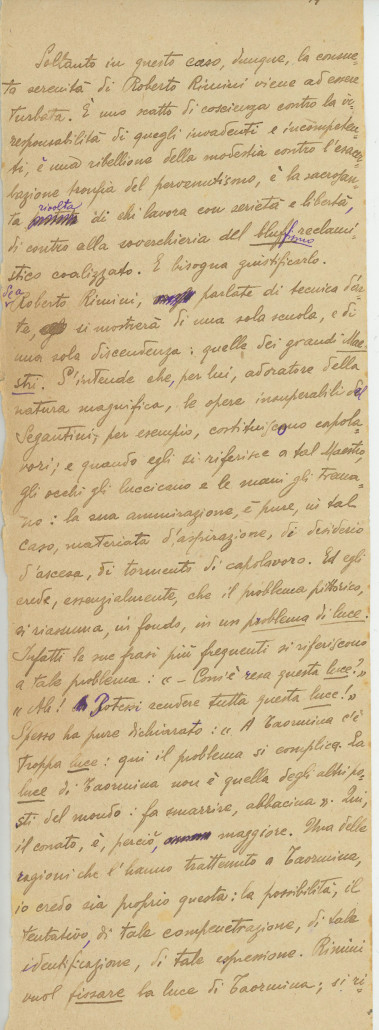 Soltanto in questo caso, dunque, la consue-
ta serenità di Roberto Rimini viene ad essere
turbata. È uno scatto di coscienza contro la ir-
responsabilità di quegli invadenti e incompeten-
ti, è una ribellione della modestia contro l'esacer-
bazione tronfia del parvenutismo, è la sacrosan-
ta rivolta di chi lavora con serietà e libertà,
di contro alla soverchieria del bluffismo reclami-
stico coalizzato. E bisogna giustificarlo.
Se a Roberto Rimini, parlate di tecnica d'ar-
te, egli si mostrerà di una sola scuola, e di
una sola discendenza: quella dei grandi Mae-
stri. S'intende che, per lui, adoratore della
natura magnifica, le opere insuperabili del
Segantini, per esempio, costituiscono capola-
vori; e quando egli si riferisce a tal Maestro,
gli occhi gli luccicano e le mani gli trema-
no: la sua ammirazione, è pure, in tal
caso, materiata d'aspirazione, di desiderio
d'ascesa, di tormento di capolavoro. Ed egli
crede, essenzialmente, che il problema pittorico,
si riassuma, in fondo, in un problema di luce.
Infatti le sue frasi più frequenti si riferiscono
a tale problema: "- Com'è resa questa luce?"
"Ah! Potessi rendere tutta questa luce!"
Spesso ha pure dichiarato: "A Taormina c'è
troppa luce: qui il problema si complica. La
luce di Taormina non è quella degli altri po-
sti del mondo: fa smarrire, abbacina". Qui,
il conato, è, perciò, maggiore. Una delle
ragioni che l'hanno trattenuto a Taormina,
io credo sia proprio questa: la possibilità, il
tentativo, di tale compenetrazione, di tale
identificazione, di tale espressione. Rimini
vuol fissare la luce di Taormina; si ri-